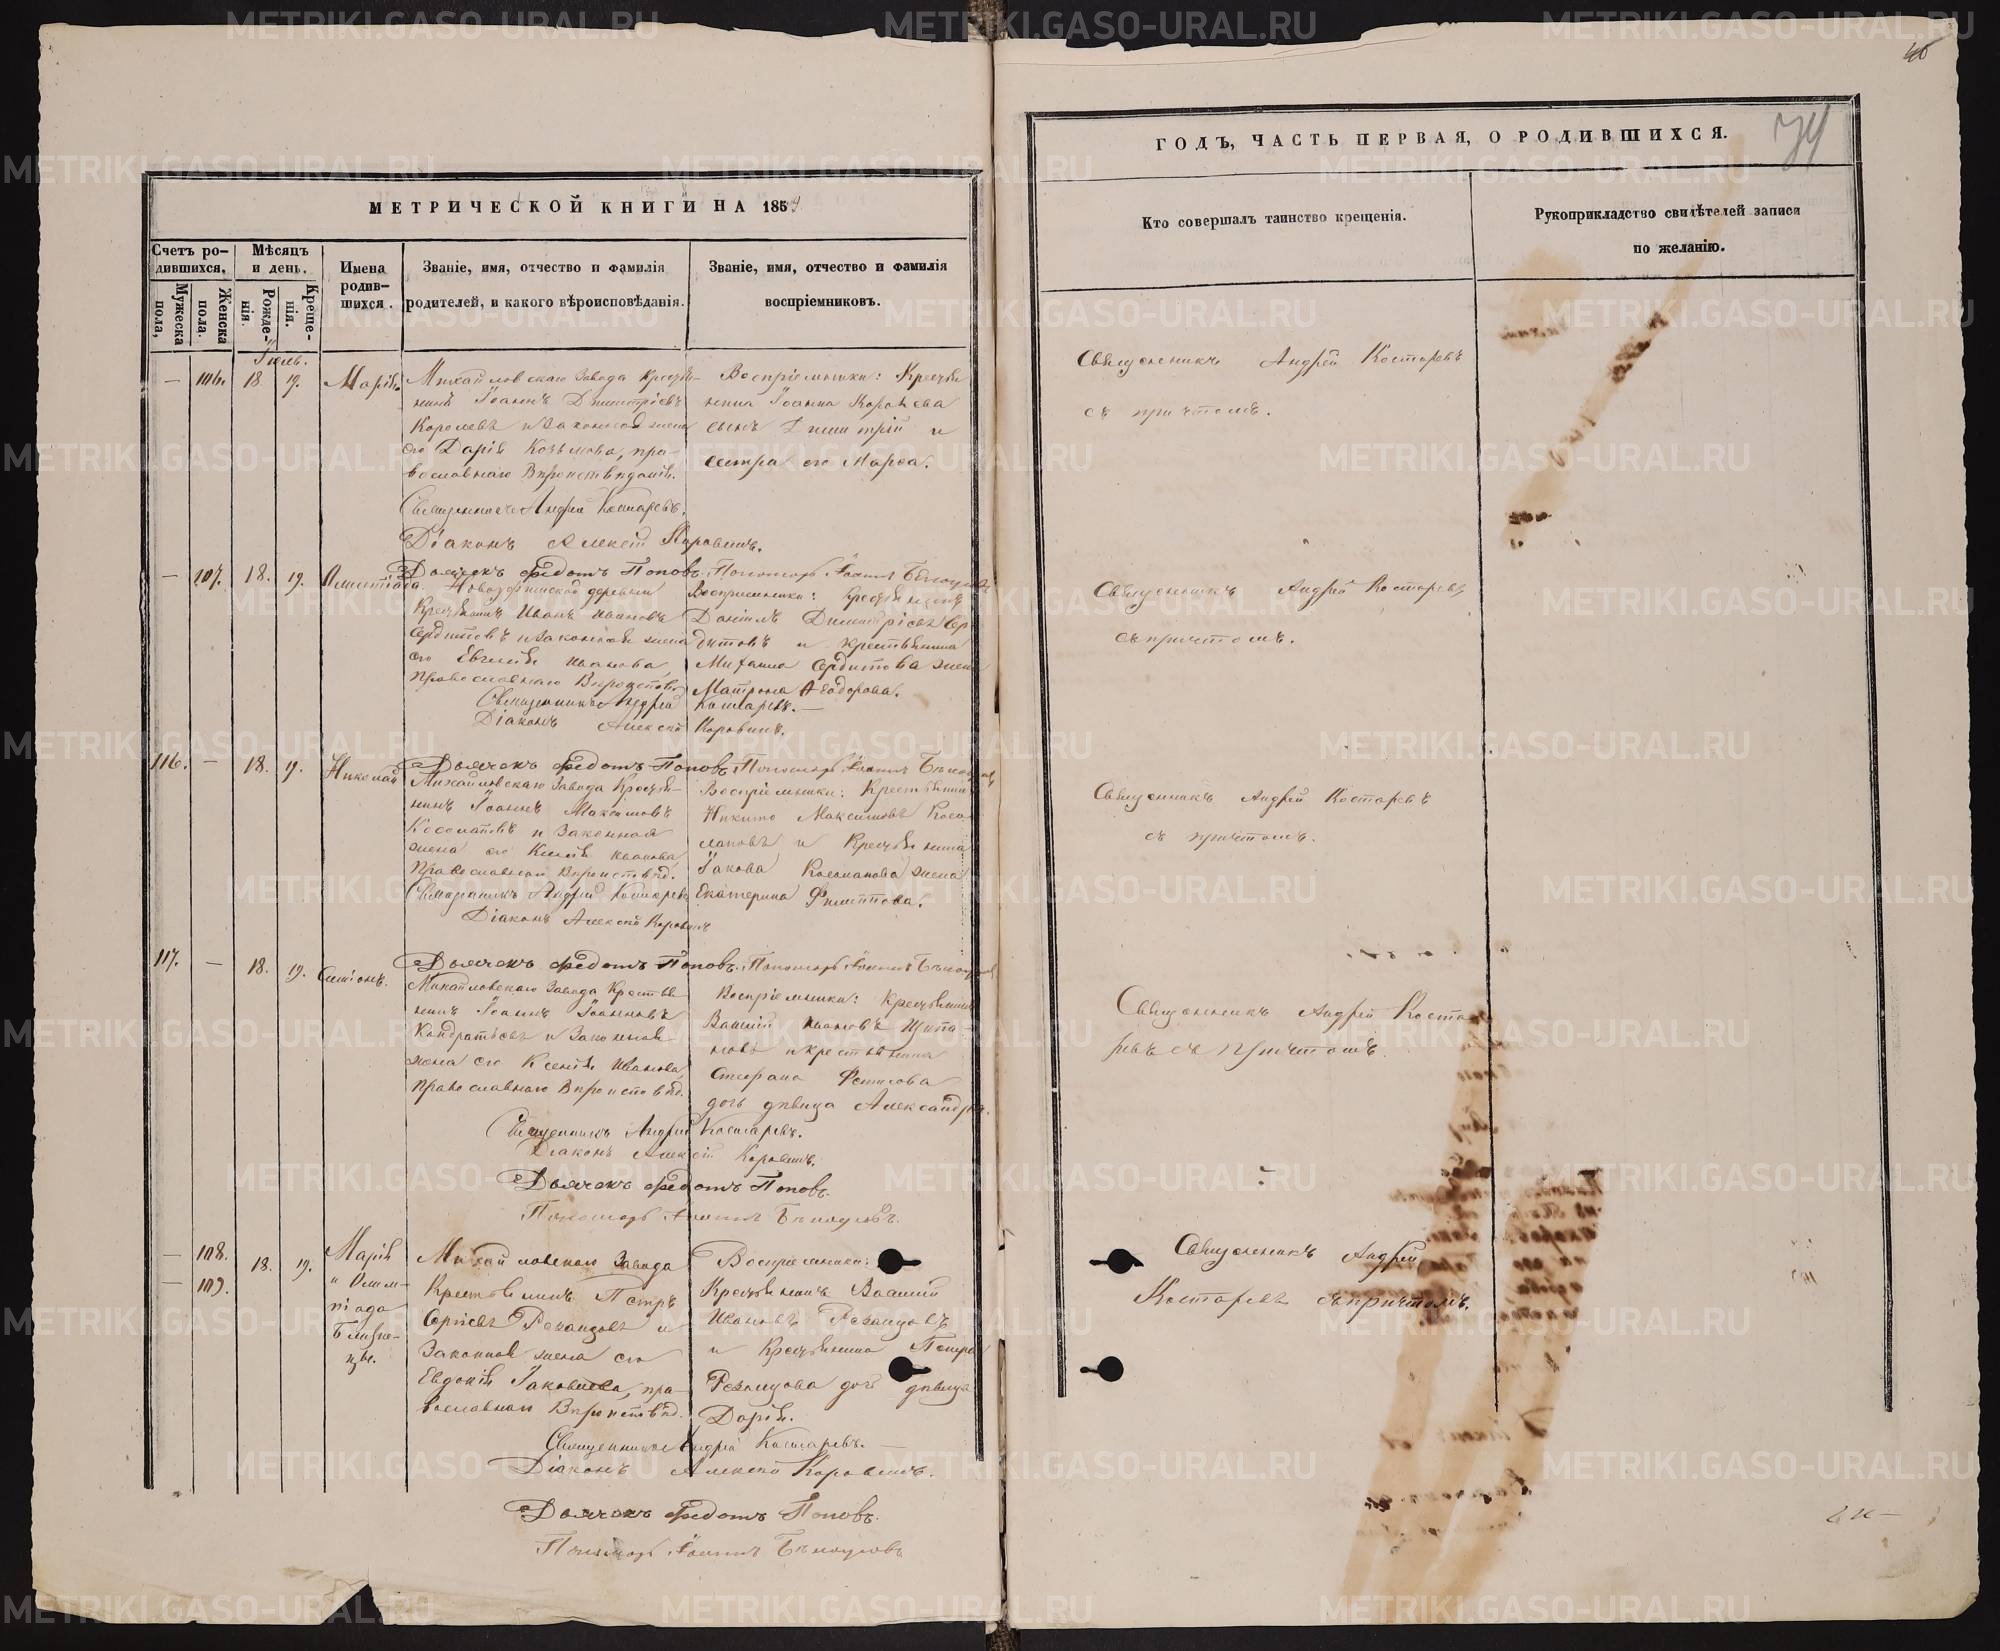 46
74
МЕТРИЧЕСКОЙ КНИГИ НА 1859
ГОДЪ, ЧАСТЬ ПЕРВАЯ, О РОДИВШИХСЯ.
Счетъ ро-
дившихся.
Мужеска
пола,
Женска
пола.
Мѣсяцъ
и день.
Рожде-
нія.
Креще-
нія.
Имена
родив-
шихся.
Званіе, имя, отчество и фамилія
родителей, и какого вѣроисповѣданія.
Званіе, имя, отчество и фамилія
воспріемниковъ.
Кто совершалъ таинство крещенія.
Рукоприкладство свидѣтелей записи
по желанію.
Іюль.
— 106. 18 19. Марія
Михайловскаго Завода Крестья-
нинъ Іоаннъ Димитріевъ
Королевъ и Законная жена
его Дарія Козьмова, пра-
вославнаго Вѣроисповѣданія.
Воспріемники: Крестья
нина Іоанна Королева
сынъ Димитрій и
сестра его Марѳа.
Священникъ Андрей Костаревъ
съ причтомъ.
Священникъ Андрей Костаревъ.
Діаконъ Алексій Коровинъ.
Дьячекъ Федотъ Поповъ. Пономарь Іоаннъ
— 107. 18. 19. Олимпіада
деревни
Крестьянинъ Иванъ Ивановъ
Сердитовъ и Законная жена
его Евгенія Иванова,
Православнаго Вѣроисповѣд.
Воспріемники: Крестьянинъ
Даніилъ Димитріевъ Сер-
дитовъ и крестьянина
Михаила Сердитова жена
Матрона Ѳеодорова.
Священникъ Андрей Костаревъ
съ причтомъ.
Священникъ Андрей Костаревъ.—
Діаконъ Алексій Коровинъ.
Дьячекъ Федотъ Поповъ. Пономарь Іоаннъ
116. — 18. 19. Николай
Михайловскаго Завода Крестья-
нинъ Іоаннъ Максимовъ
Косолаповъ и Законная
жена его Ксенія Иванова,
Православнаго Вѣроисповѣд.
Воспріемники: Крестьянинъ
Никита Максимовъ Косо-
лаповъ и Крестьянина
Іакова Косолапова жена
Екатерина Филиппова.
Священникъ Андрей Костаревъ
съ причтомъ.
Священникъ Андрей Костаревъ
Діаконъ Алексій Коровинъ
Дьячекъ Федотъ Поповъ. Пономарь Іоаннъ
117. — 18. 19. Симіонъ.
Михайловскаго Завода Крестья
нинъ Іоаннъ Іоанновъ
Кондратьевъ и Законная
жена его Ксенія Иванова,
православнаго Вѣроисповѣд.
Воспріемники: Крестьянинъ
Василій Ивановъ Щипа-
новъ и крестьянина
Стефана Фетисова
дочь дѣвица Александра.
Священникъ Андрей Коста
ревъ съ причтомъ
Священникъ Андрей Костаревъ.
Діаконъ Алексій Коровинъ.
Дьячекъ Федотъ Поповъ.
Пономарь Іоаннъ
— 108.
— 109.
18. 19.
Марія
и Олим-
піада
Близне-
цы.
Михайловскаго Завода
Крестьянинъ Петръ
Сергіевъ и
Законная жена его
Евдокія Іаковлева, пра-
вославнаго Вѣроисповѣд.
Воспріемники:
Крестьянинъ Василій
Ивановъ
и Крестьянина Петра
дочь дѣвица
Дарія.
Священникъ Андрей
Костаревъ съ причтомъ.
Священникъ Андрей Костаревъ.—
Діаконъ Алексій Коровинъ.
Дьячекъ Федотъ Поповъ.
Пономарь Іоаннъ
METRIKI.GASO-URAL.RU